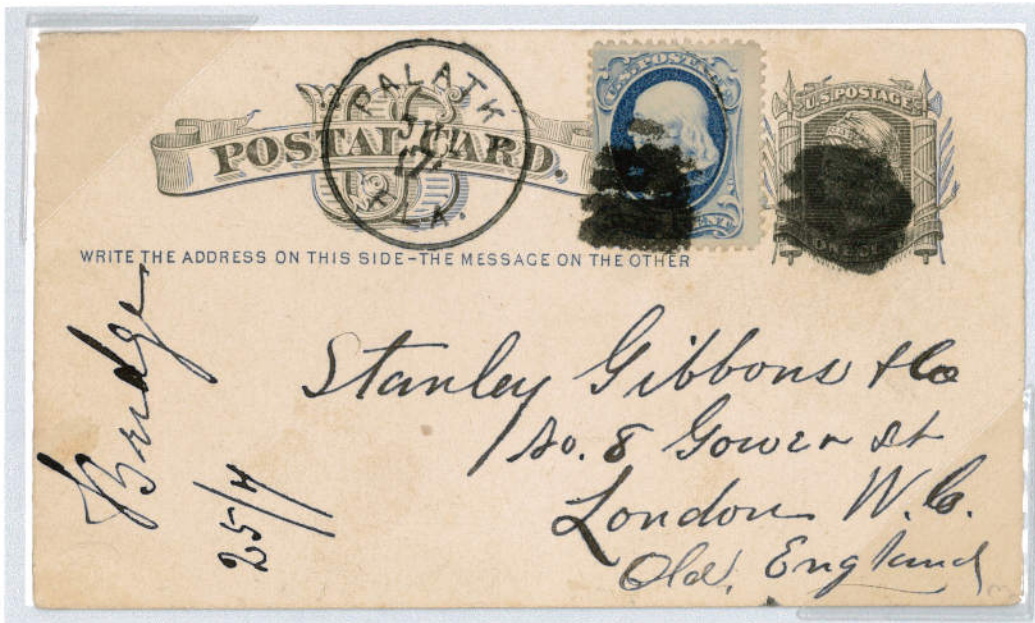 POSTAL CARD.
PALATK
JUL
17
FLA.
U.S. POSTAGE
U.S. POSTAGE
WRITE THE ADDRESS ON THIS SIDE - THE MESSAGE ON THE OTHER
Stanley Gibbons & Co
No. 8 Gower St
London W.C.
Old. England
25/7